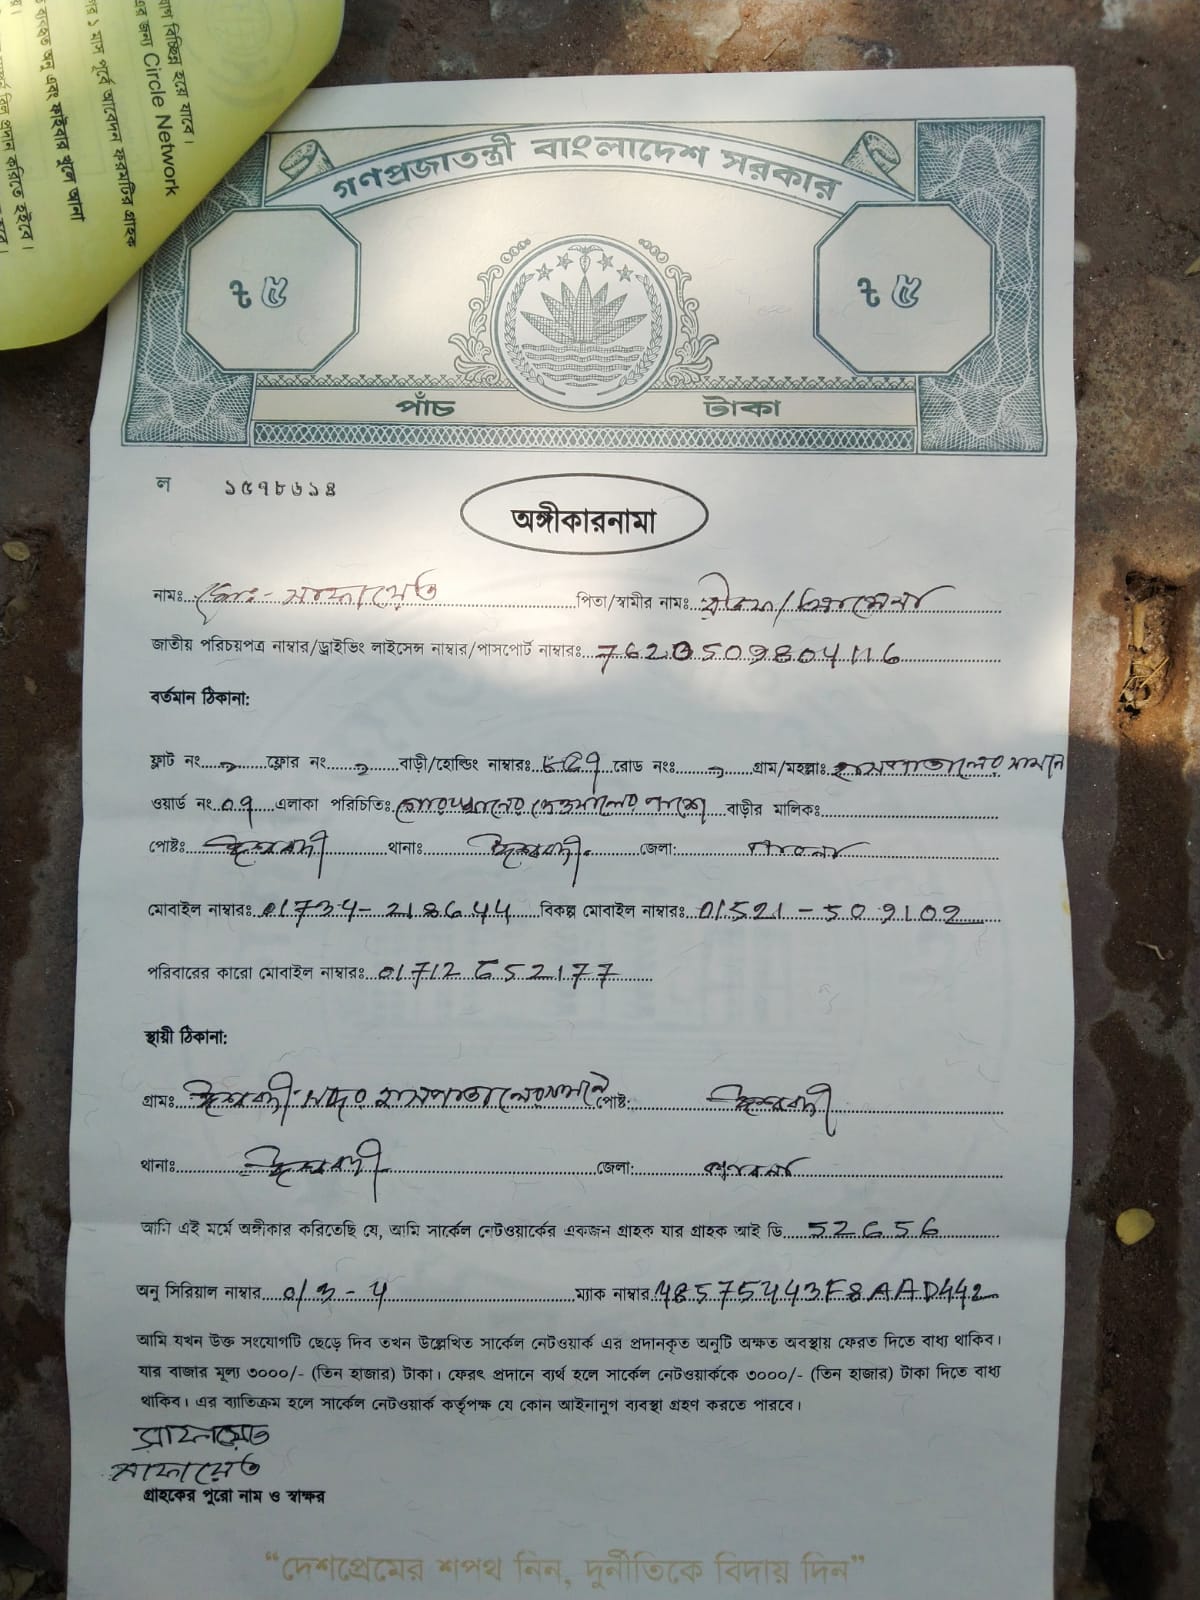 গ বিচ্ছিন্ন হয়ে যাবে।
জন্য Circle Network
১ মাস পূর্বে আবেদন ফরমটির গ্রাহক
অনু এবং ফাইবার খুলে আনা
প্রদান করিতে হইবে।
গণপ্রজাতন্ত্রী বাংলাদেশ সরকার
৳ ৫ ৳ ৫
পাঁচ টাকা
ল ১৫৭৮৬১৪
অঙ্গীকারনামা
নামঃ মোঃ- সাফায়েত পিতা/স্বামীর নামঃ
জাতীয় পরিচয়পত্র নাম্বার/ড্রাইভিং লাইসেন্স নাম্বার/পাসপোর্ট নাম্বারঃ 7620509804116
বর্তমান ঠিকানা:
ফ্লাট নং ফ্লোর নং বাড়ী/হোল্ডিং নাম্বারঃ রোড নংঃ গ্রাম/মহল্লাঃ হাসপাতালের সামনে
ওয়ার্ড নং ০৭ এলাকা পরিচিতিঃ পাশে বাড়ীর মালিকঃ
পোষ্টঃ ঈশ্বরদী থানাঃ ঈশ্বরদী জেলা: পাবনা
মোবাইল নাম্বারঃ 01734-218644 বিকল্প মোবাইল নাম্বারঃ 01521-509102
পরিবারের কারো মোবাইল নাম্বারঃ 01712652177
স্থায়ী ঠিকানা:
গ্রামঃ ঈশ্বরদী সদর হাসপাতালের সামনে পোষ্ট: ঈশ্বরদী
থানাঃ ঈশ্বরদী জেলা: পাবনা
আমি এই মর্মে অঙ্গীকার করিতেছি যে, আমি সার্কেল নেটওয়ার্কের একজন গ্রাহক যার গ্রাহক আই ডি 52656
অনু সিরিয়াল নাম্বার ম্যাক নাম্বার 48575443F8AAD442
আমি যখন উক্ত সংযোগটি ছেড়ে দিব তখন উল্লেখিত সার্কেল নেটওয়ার্ক এর প্রদানকৃত অনুটি অক্ষত অবস্থায় ফেরত দিতে বাধ্য থাকিব।
যার বাজার মূল্য ৩০০০/- (তিন হাজার) টাকা। ফেরৎ প্রদানে ব্যর্থ হলে সার্কেল নেটওয়ার্ককে ৩০০০/- (তিন হাজার) টাকা দিতে বাধ্য
থাকিব। এর ব্যতিক্রম হলে সার্কেল নেটওয়ার্ক কর্তৃপক্ষ যে কোন আইনানুগ ব্যবস্থা গ্রহণ করতে পারবে।
সাফায়েত
সাফায়েত
গ্রাহকের পুরো নাম ও স্বাক্ষর
“দেশপ্রেমের শপথ নিন, দুর্নীতিকে বিদায় দিন”